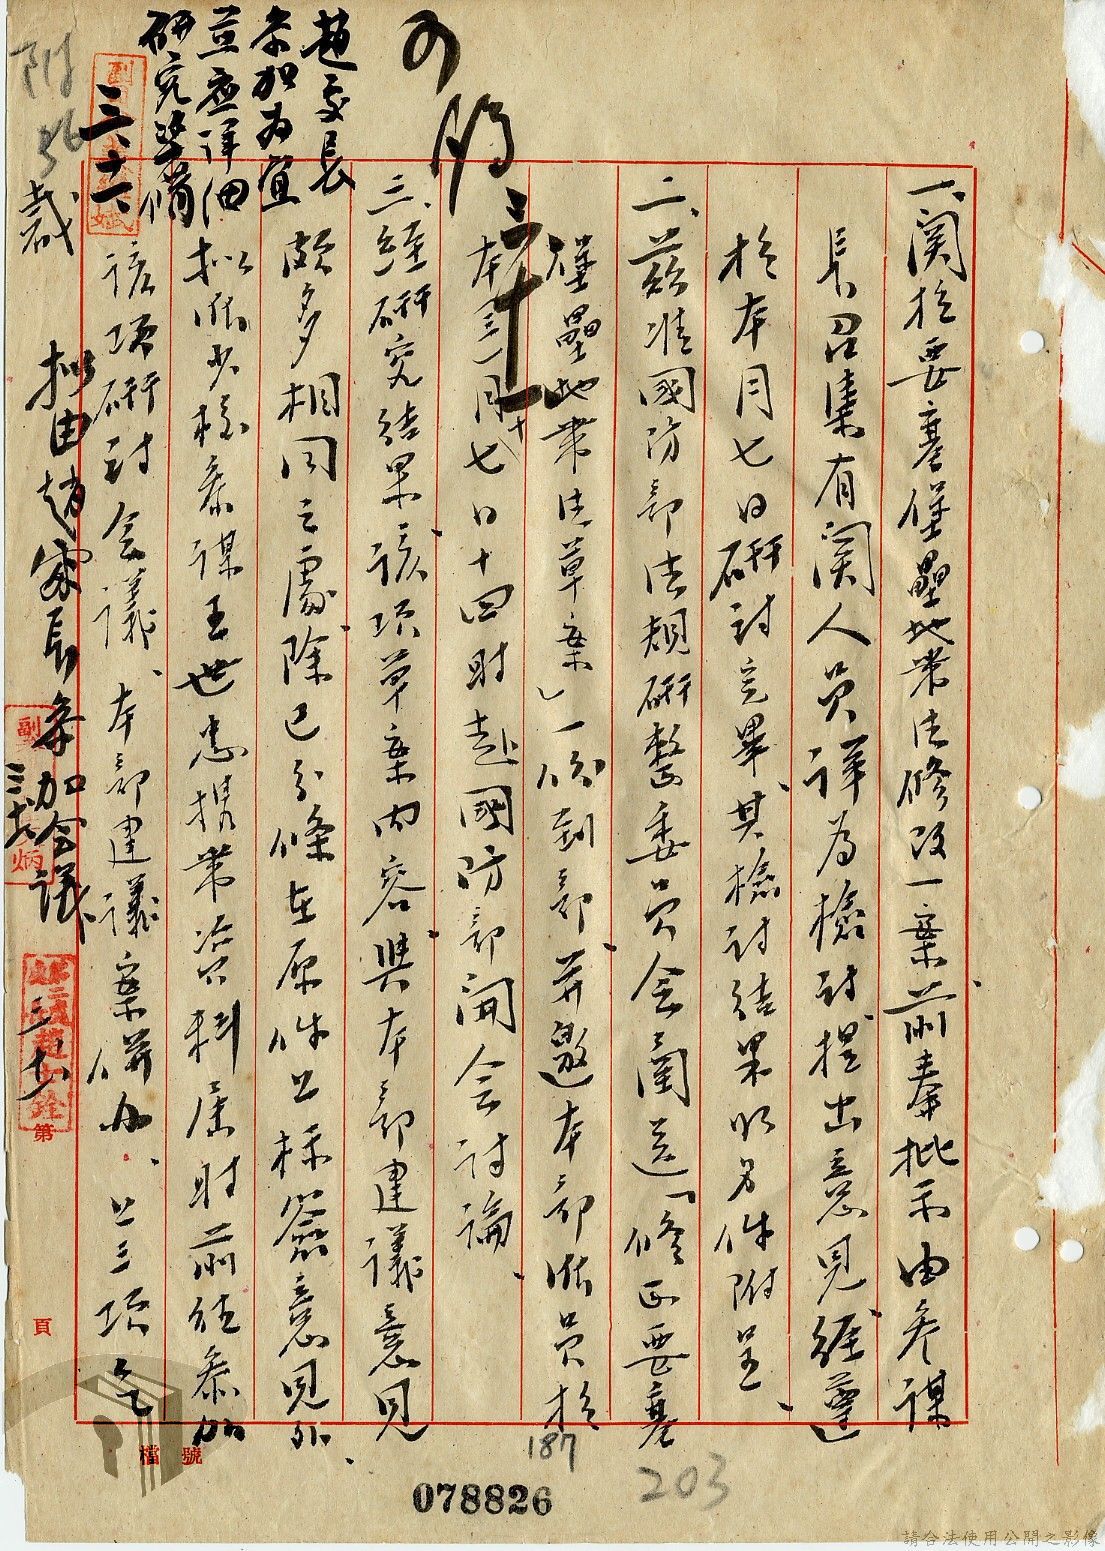 一、関於要塞堡壘地帶法修改一案、前奉批示由參謀
長召集有関人員詳為檢討提出意見、經遵
於本月七日研討完畢、其檢討結果收另件附呈、
二、茲准國防部法規研整委員会函送「修正要塞
堡壘地帶法草案」一份到部、并邀本部派員於
本三月十七日十四時赴國防部開会討論、
三、經研究結果、該項草案內容、與本部建議意見
頗多相同之處、除已分條在原件上標簽意見外、
擬派少校參謀王世忠携帶資料屆時前往參加
該項研討会議、本部建議案併办、上三項乞
裁
擬由趙處長參加会議
趙處長
參加為宜
並應詳細
研究準備
三六
可
三十一
附
36
第
頁
檔號
187
203
078826
請合法使用公開之影像